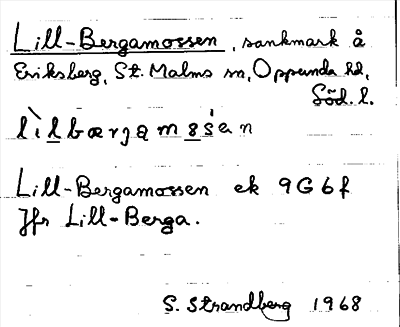 Lill-Bergamossen, sankmark å
Eriksberg, St. Malms sn, Oppunda hd,
Söd. l.
lìlbærjamåsen
Lill-Bergamossen ek 9G6f
Jfr Lill-Berga.
S. Strandberg 1968